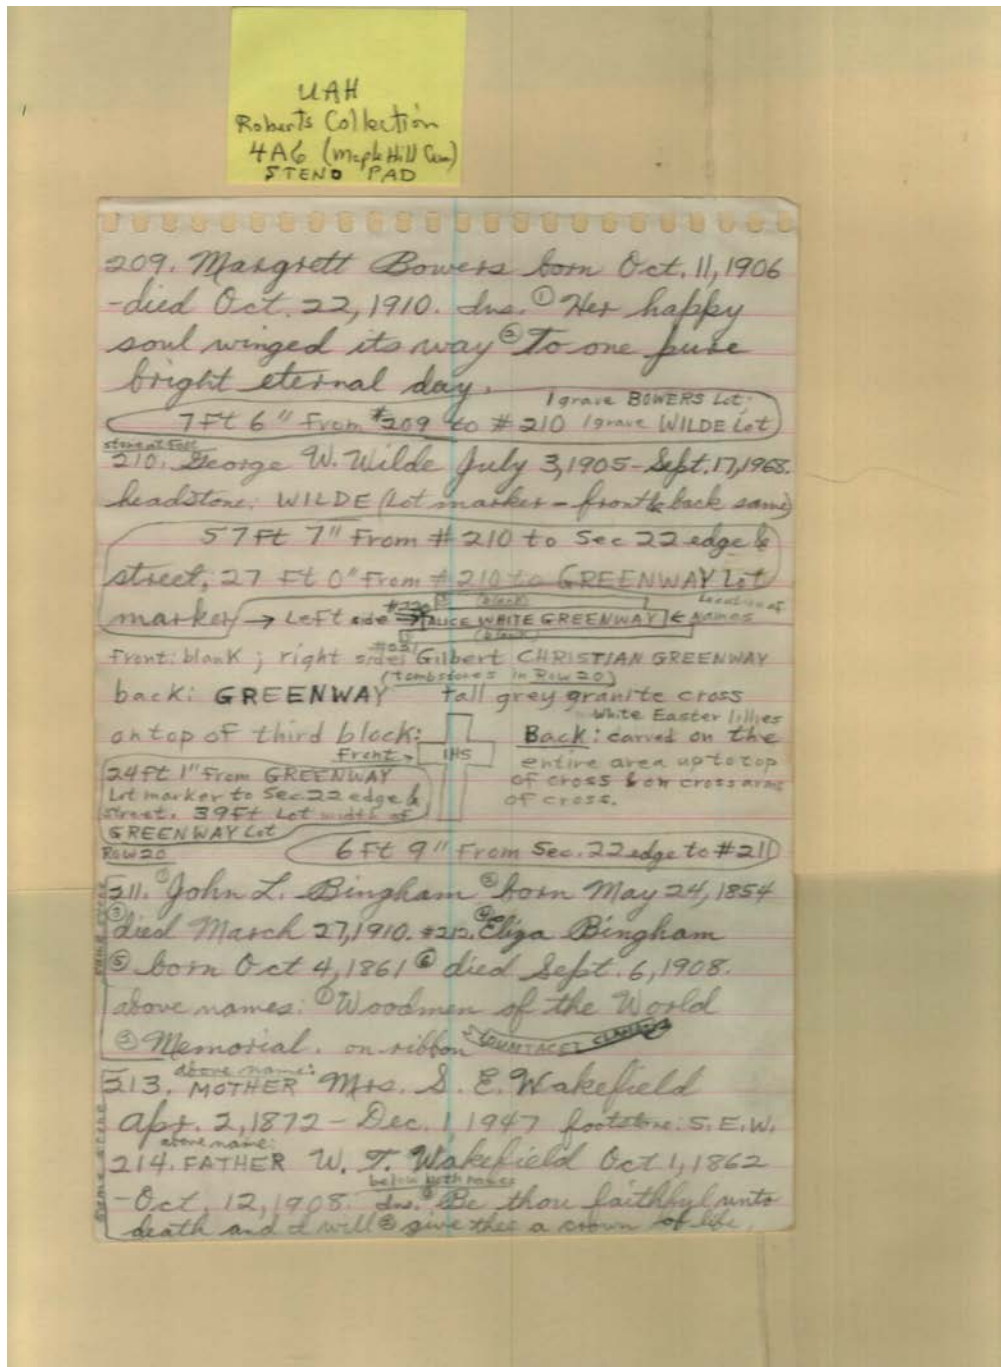 UAH
Roberts Collection
4A6 (Maple Hill Cem)
STENO PAD
209. Margrett Bowers born Oct. 11, 1906
-died Oct. 22, 1910. Ins. ① Her happy
soul winged its way ② To one pure
bright eternal day.
1 grave BOWERS Lot;
7 Ft 6" From #209 to #210 1 grave WILDE Lot
stone at Foot
210. George W. Wilde July 3, 1905 - Sept. 17, 1968.
headstone: WILDE (Lot marker - front & back same)
57 Ft 7" From #210 to Sec 22 edge &
street, 27 Ft 0" From #210 to GREENWAY Lot
marker → Left side #220 → ALICE WHITE GREENWAY ← Location of Names
(blank)
(blank)
front: blank ; right side: #221 Gilbert CHRISTIAN GREENWAY
(tombstones in Row 20)
back: GREENWAY tall grey granite cross
on top of third block:
Front → IHS
White Easter lillies
Back: carved on the
entire area up to top
of cross & on cross arms
of cross.
24 Ft 1" From GREENWAY
Lot marker to Sec. 22 edge &
street. 39 Ft Lot width of
GREENWAY Lot
Row 20
6 Ft 9" From Sec. 22 edge to #211
same stone
211. ① John L. Bingham ② born May 24, 1854
③ died March 27, 1910. #212. ④ Eliza Bingham
⑤ born Oct 4, 1861 ⑥ died Sept. 6, 1908.
above names: ① Woodmen of the World
② Memorial. on ribbon
same stone
above name:
213. MOTHER Mrs. S. E. Wakefield
Apr. 2, 1872 - Dec. 1 1947 footstone: S.E.W.
above name:
214. FATHER W. T. Wakefield Oct 1, 1862
below both names
- Oct. 12, 1908. Ins. ① Be thou faithful unto
death and I will ② give thee a crown of life.